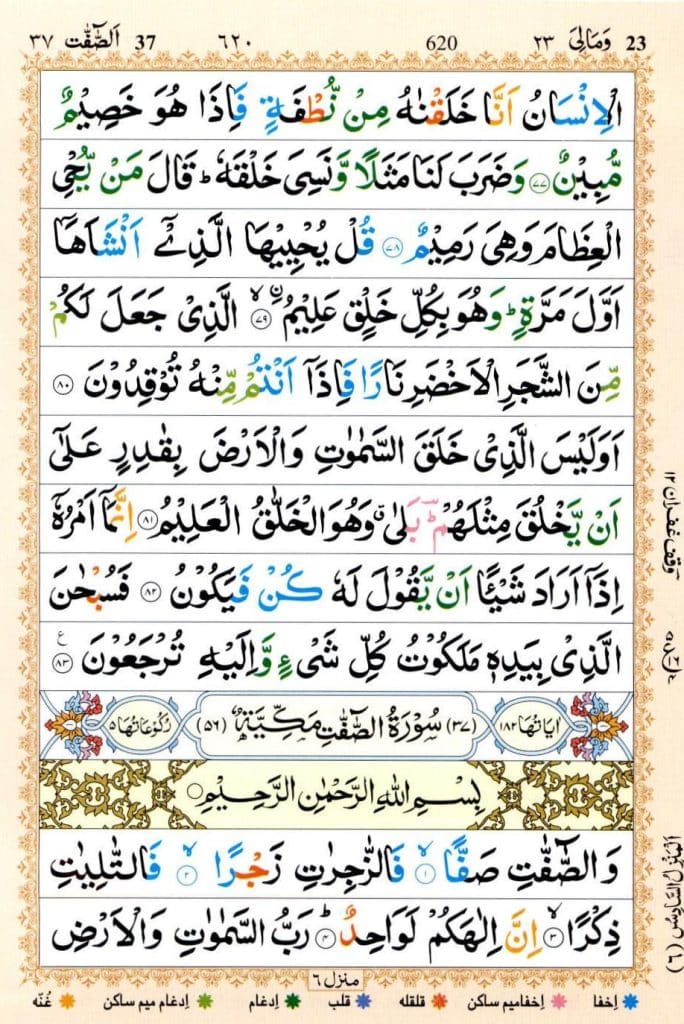 23 وَمَالِیَ ۲۳ 620 ٦٢٠ 37 اَلصّٰٓفّٰت ۳۷
الْاِنْسَانُ اَنَّا خَلَقْنٰهُ مِنْ نُّطْفَةٍ فَاِذَا هُوَ خَصِيْمٌ
مُّبِيْنٌ ﴿۷۷﴾ وَضَرَبَ لَنَا مَثَلًا وَّنَسِیَ خَلْقَهٗ ؕ قَالَ مَنْ يُّحْیِ
الْعِظَامَ وَهِیَ رَمِيْمٌ ﴿۷۸﴾ قُلْ يُحْيِيْهَا الَّذِیْۤ اَنْشَاَهَاۤ
اَوَّلَ مَرَّةٍ ؕ وَهُوَ بِكُلِّ خَلْقٍ عَلِيْمُ ۨ ﴿۷۹﴾ۙ الَّذِیْ جَعَلَ لَكُمْ
مِّنَ الشَّجَرِ الْاَخْضَرِ نَارًا فَاِذَاۤ اَنْتُمْ مِّنْهُ تُوْقِدُوْنَ ﴿۸۰﴾
اَوَلَيْسَ الَّذِیْ خَلَقَ السَّمٰوٰتِ وَالْاَرْضَ بِقٰدِرٍ عَلٰۤى
اَنْ يَّخْلُقَ مِثْلَهُمْ ؕؔ بَلٰى ۗ وَهُوَ الْخَلّٰقُ الْعَلِيْمُ ﴿۸۱﴾ اِنَّمَاۤ اَمْرُهٗۤ
اِذَاۤ اَرَادَ شَيْـًٔا اَنْ يَّقُوْلَ لَهٗ كُنْ فَيَكُوْنُ ﴿۸۲﴾ فَسُبْحٰنَ
الَّذِیْ بِيَدِهٖ مَلَكُوْتُ كُلِّ شَیْءٍ وَّاِلَيْهِ تُرْجَعُوْنَ ﴿۸۳﴾ ع
اٰيَاتُهَا ۱۸۲ (۳۷) سُوْرَةُ الصّٰٓفّٰتِ مَكِّيَّةٌ (۵٦) رُكُوْعَاتُهَا ۵
بِسْمِ اللّٰهِ الرَّحْمٰنِ الرَّحِيْمِ
وَالصّٰٓفّٰتِ صَفًّا ﴿۱﴾ۙ فَالزّٰجِرٰتِ زَجْرًا ﴿۲﴾ۙ فَالتّٰلِيٰتِ
ذِكْرًا ﴿۳﴾ۙ اِنَّ اِلٰهَكُمْ لَوَاحِدٌ ﴿۴﴾ؕ رَبُّ السَّمٰوٰتِ وَالْاَرْضِ
وقف غفران ۱۲
اَلْمَنْزِلُ السَّادِسُ (٦)
منزل ٦
اِخفا اِخفامیم ساکن قلقله قلب اِدغام اِدغام میم ساکن غُنّه